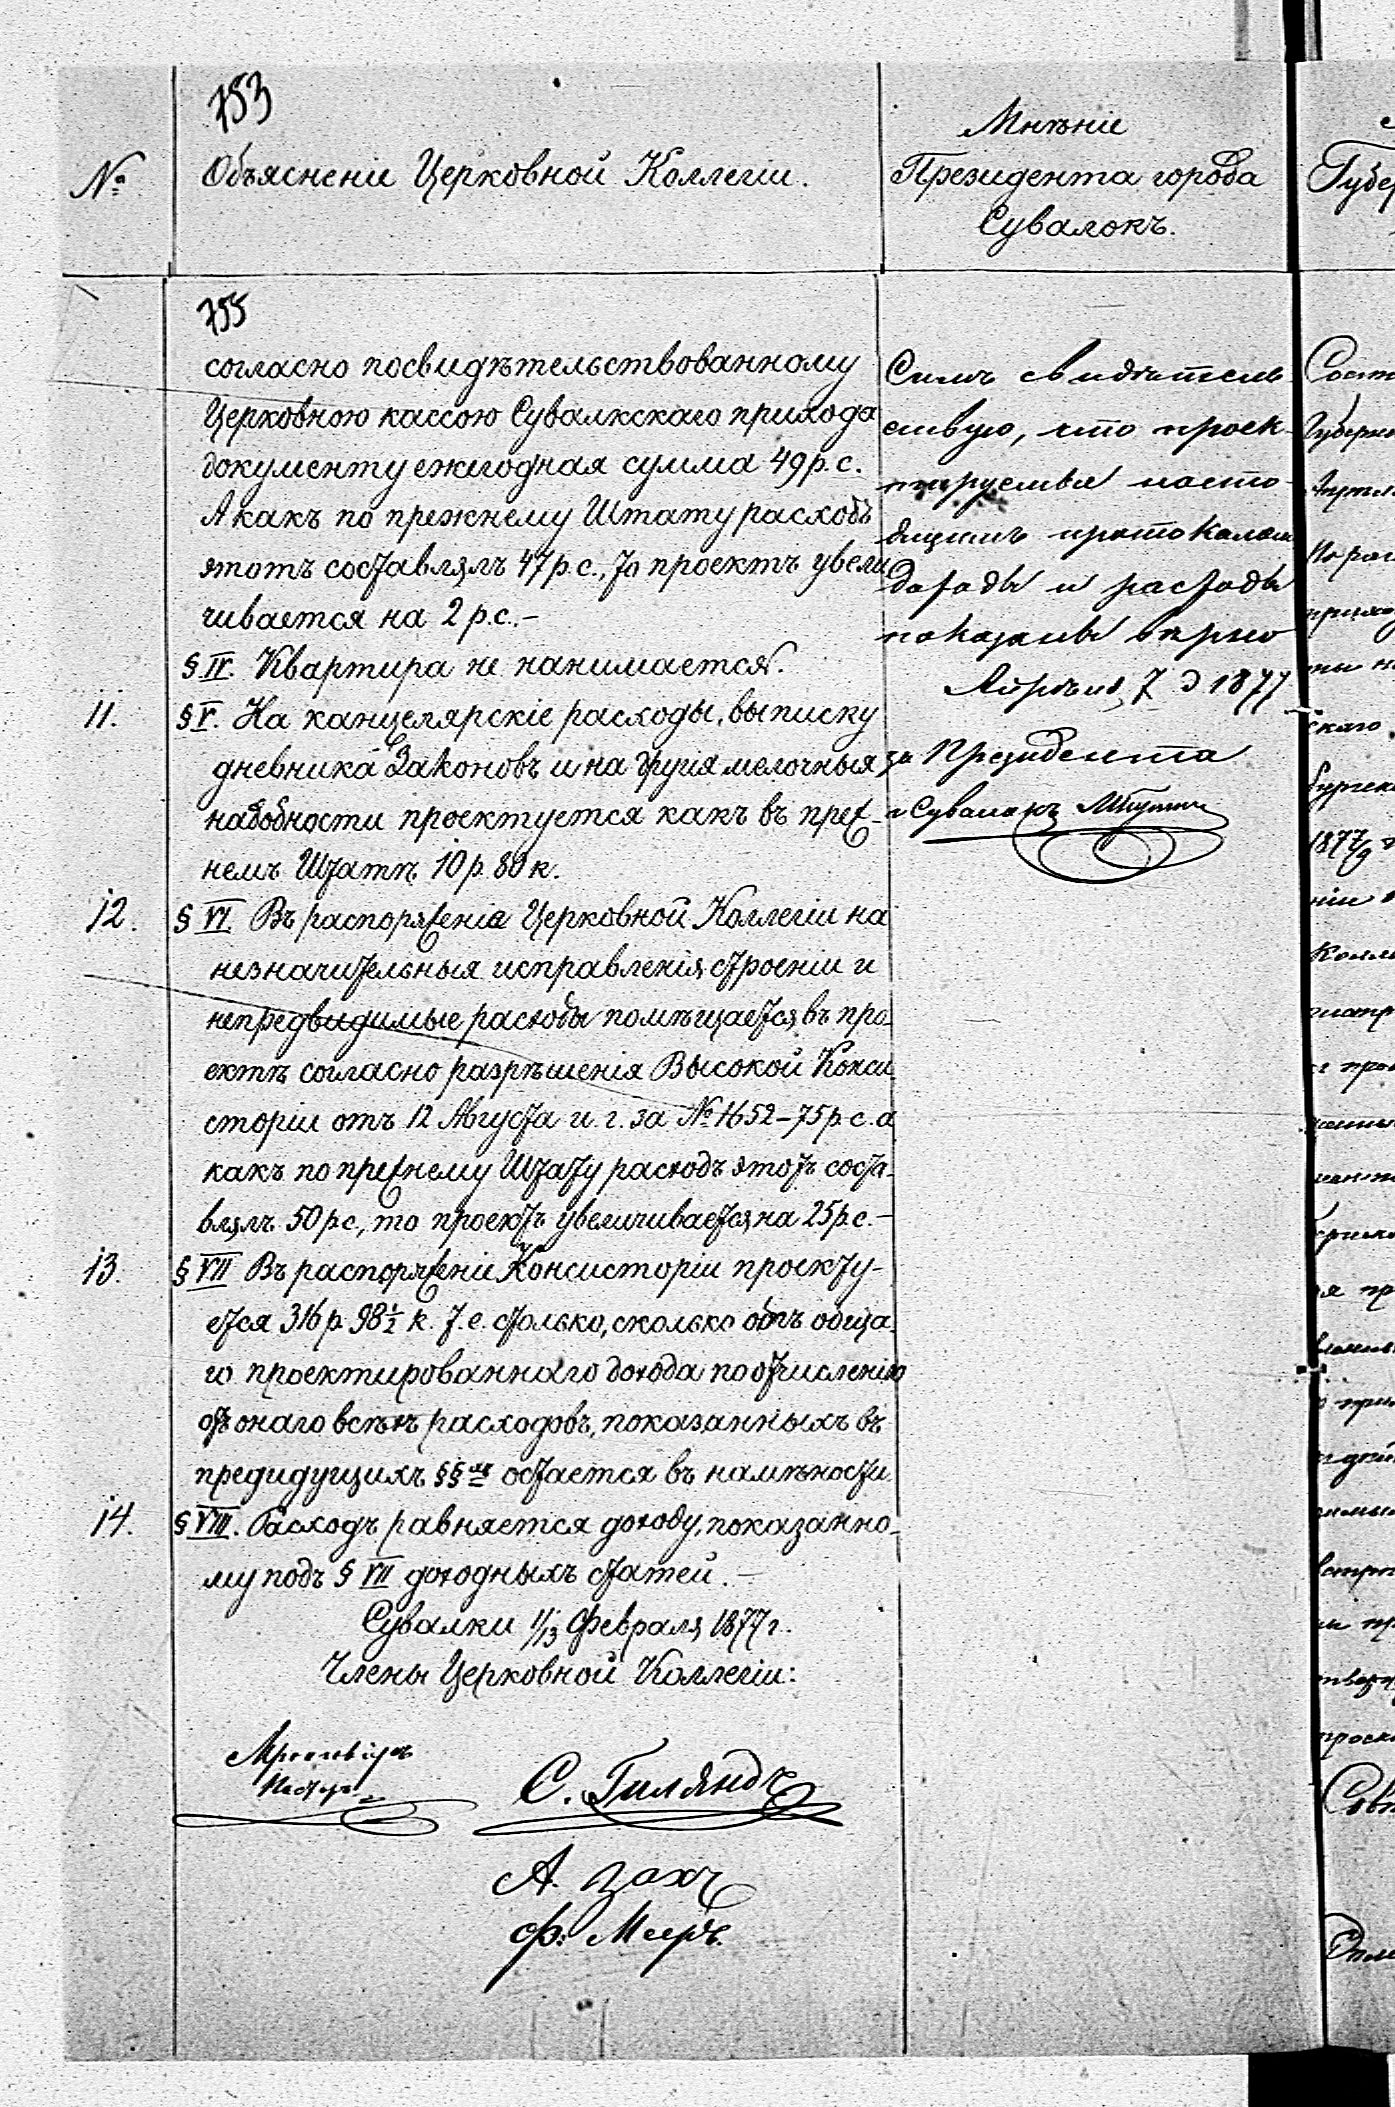 753
№
Объясненіе Церковной Коллегіи.
Мнѣніе
Президента города
Сувалокъ.
755
согласно посвидѣтельствованному
Церковною кассою Сувалкскаго прихода
документу ежегодная сумма 49 р. с.
А какъ по прежнему Штату расходъ
этотъ составлялъ 47 р. с., то проектъ увели
чивается на 2 р. с. –
§ IV. Квартира не нанимается.
11. § V. На канцелярскіе расходы, выписку
дневника Законовъ и на другія мелочныя
надобности проектуется какъ въ преж-
немъ Штатѣ 10 р. 80 к.
12. § VI. Въ распоряженіе Церковной Коллегіи на
незначительныя исправленія строеніи и
непредвидимые расходы помѣщается въ про-
ектѣ согласно разрѣшенія Высокой Конси
сторіи отъ 12 Августа и. г. за № 1652 – 75 р. с. а
какъ по прежнему Штату расходъ этотъ соста-
влялъ 50 р с., то проектъ увеличивается на 25 р. с. –
13. § VII Въ распоряженіе Консисторіи проекту-
ется 316 р. 98 ½ к. т. е. столько, сколько отъ обща-
го проектированнаго дохода по отчисленію
отъ онаго всѣхъ расходовъ, показанныхъ въ
предидущихъ §§ ах остается въ наличности.
14. § VIII. Расходъ равняется доходу, показанно-
му подъ § VII доходныхъ статей. –
Сувалки 1/13 Февраля 1877 г.
Члены Церковной Коллегіи:
Пасторъ
С. Гиляндъ
А. Захъ
Ф. Мееръ.
Симъ свидѣтель
ствую, что проек-
тируемые насто-
ящимъ протоколом
доходы и расходы
показаны вѣрно
Апрѣля 7 д 1877
за Президента
г Сувалокъ